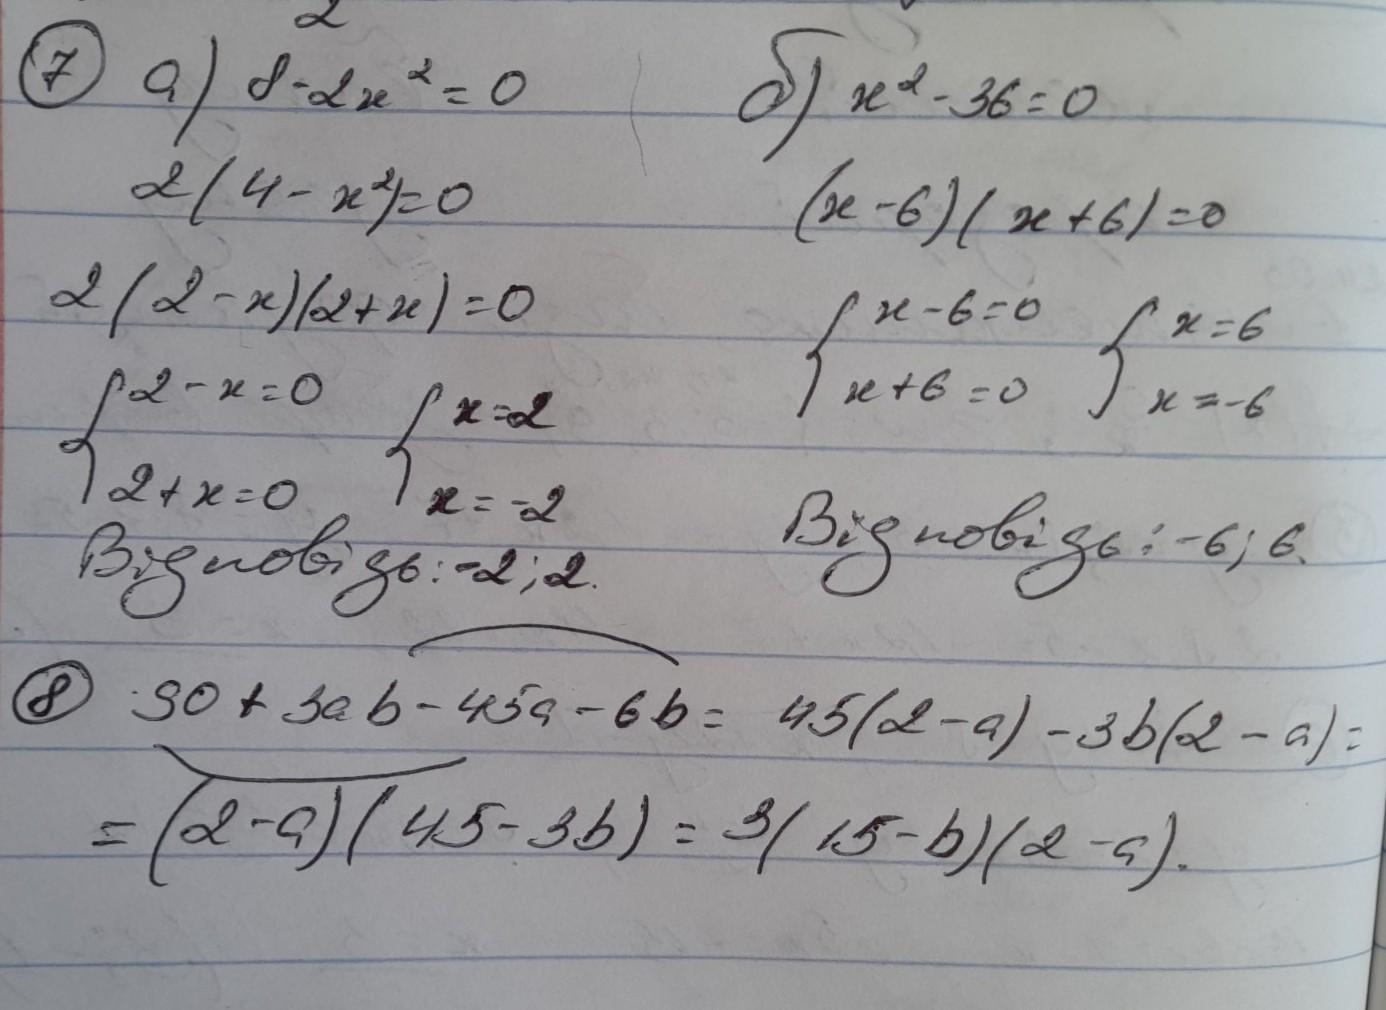 2
7 а) 8-2x²=0
2(4-x²)=0
2(2-x)(2+x)=0
{2-x=0 {x=2
2+x=0 x=-2
Відповідь: -2; 2.
б) x²-36=0
(x-6)(x+6)=0
{x-6=0 {x=6
x+6=0 x=-6
Відповідь: -6; 6.
8 90+3ab-45a-6b= 45(2-a)-3b(2-a)=
=(2-a)(45-3b)=3(15-b)(2-a).